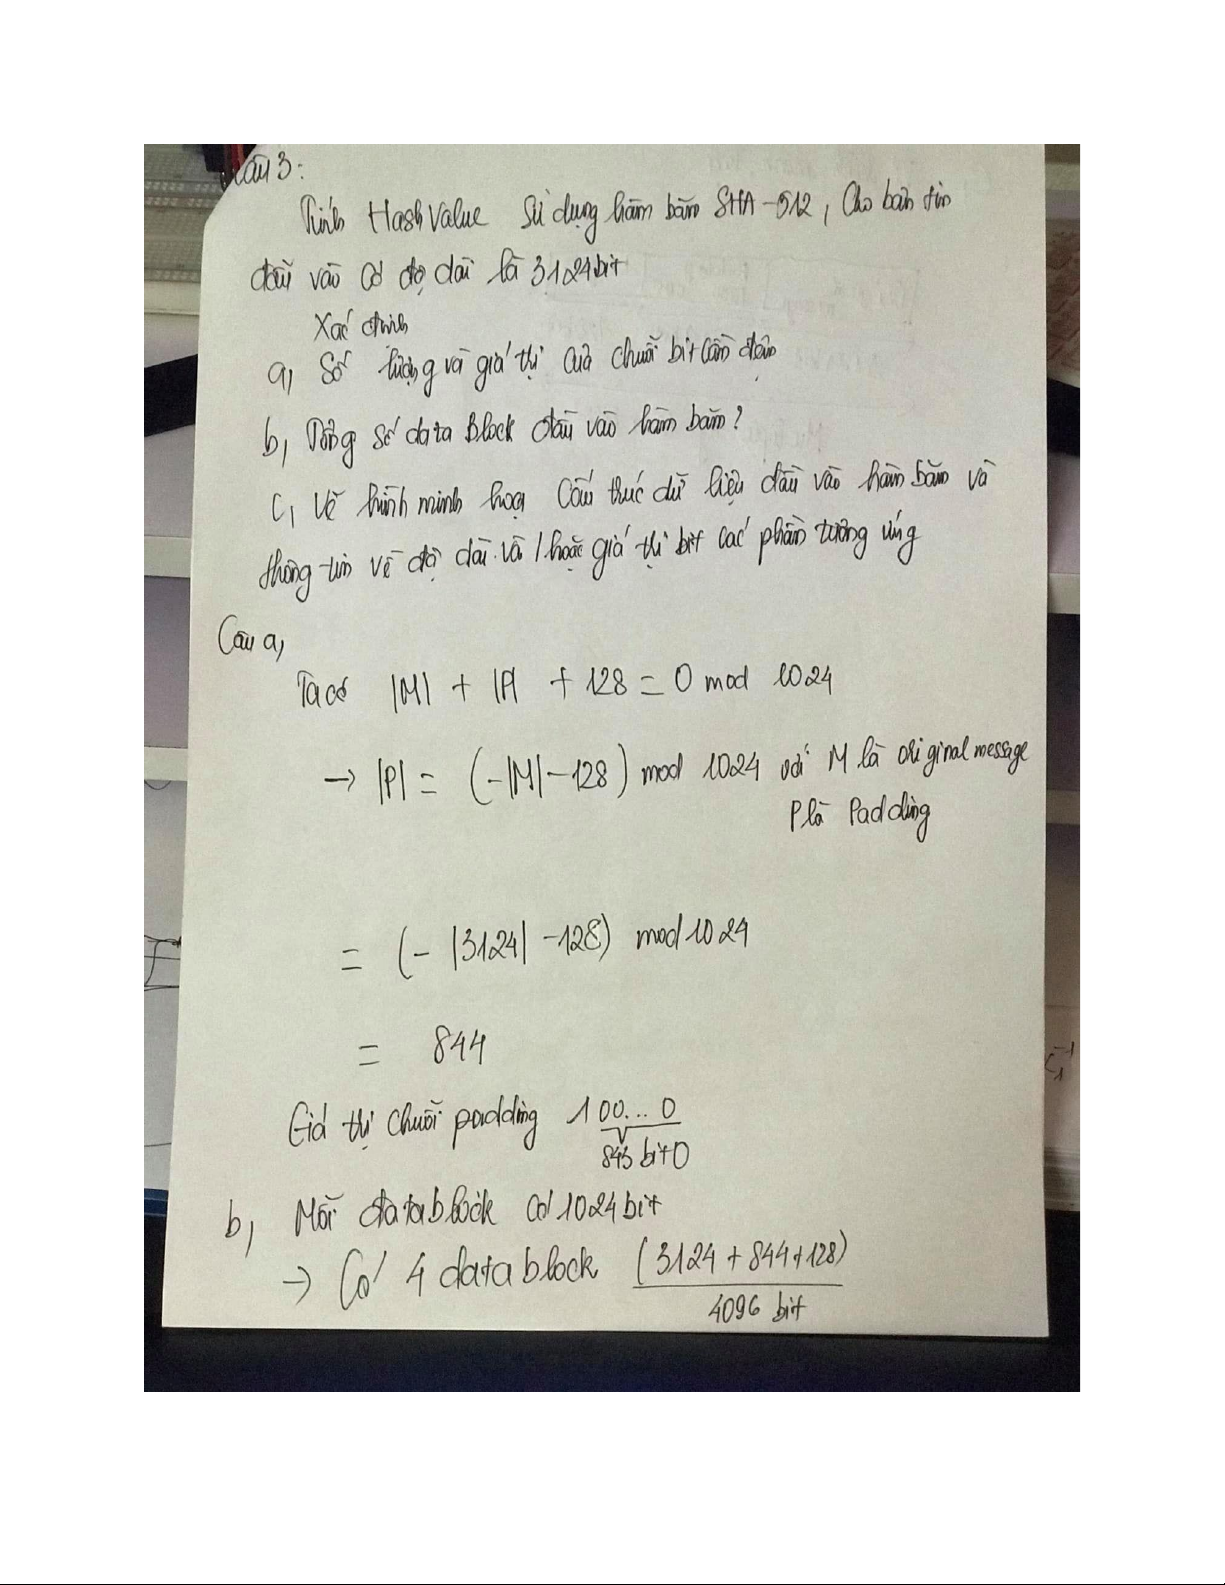 Câu 3:
Tính Hash Value Sử dụng hàm băm SHA-512, Cho bản tin
đầu vào có độ dài là 3124 bit
Xác định
a, Số lượng và giá trị của chuỗi bit cần độn
b, Tổng số data Block đầu vào hàm băm?
c, Vẽ hình minh hoạ Cấu trúc dữ liệu đầu vào hàm băm và
thông tin về độ dài và/hoặc giá trị bit các phần tương ứng
Câu a,
Ta có |M| + |P| + 128 = 0 mod 1024
→ |P| = (-|M|-128) mod 1024 với M là original message
P là Padding
= (-|3124| -128) mod 1024
= 844
Giá trị chuỗi padding 100...0
843 bit 0
b, Mỗi datablock có 1024 bit
→ Có 4 data block (3124 + 844 + 128)
4096 bit